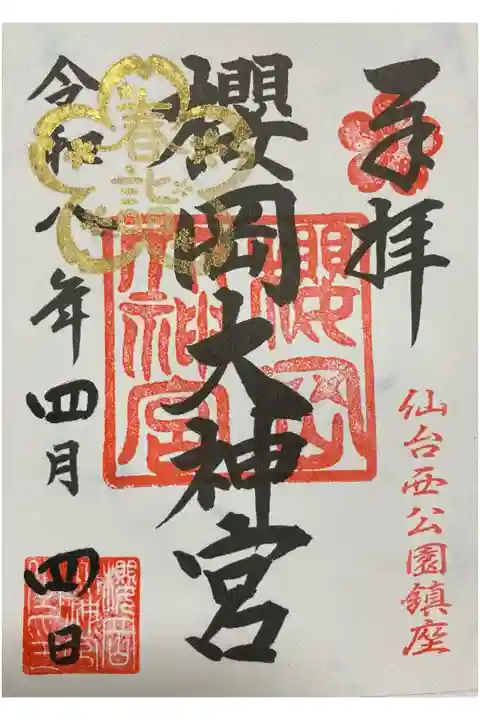 奉拝
仙台西公園鎮座
櫻岡大神宮
櫻岡
大神宮
春詣
令和八年四月四日